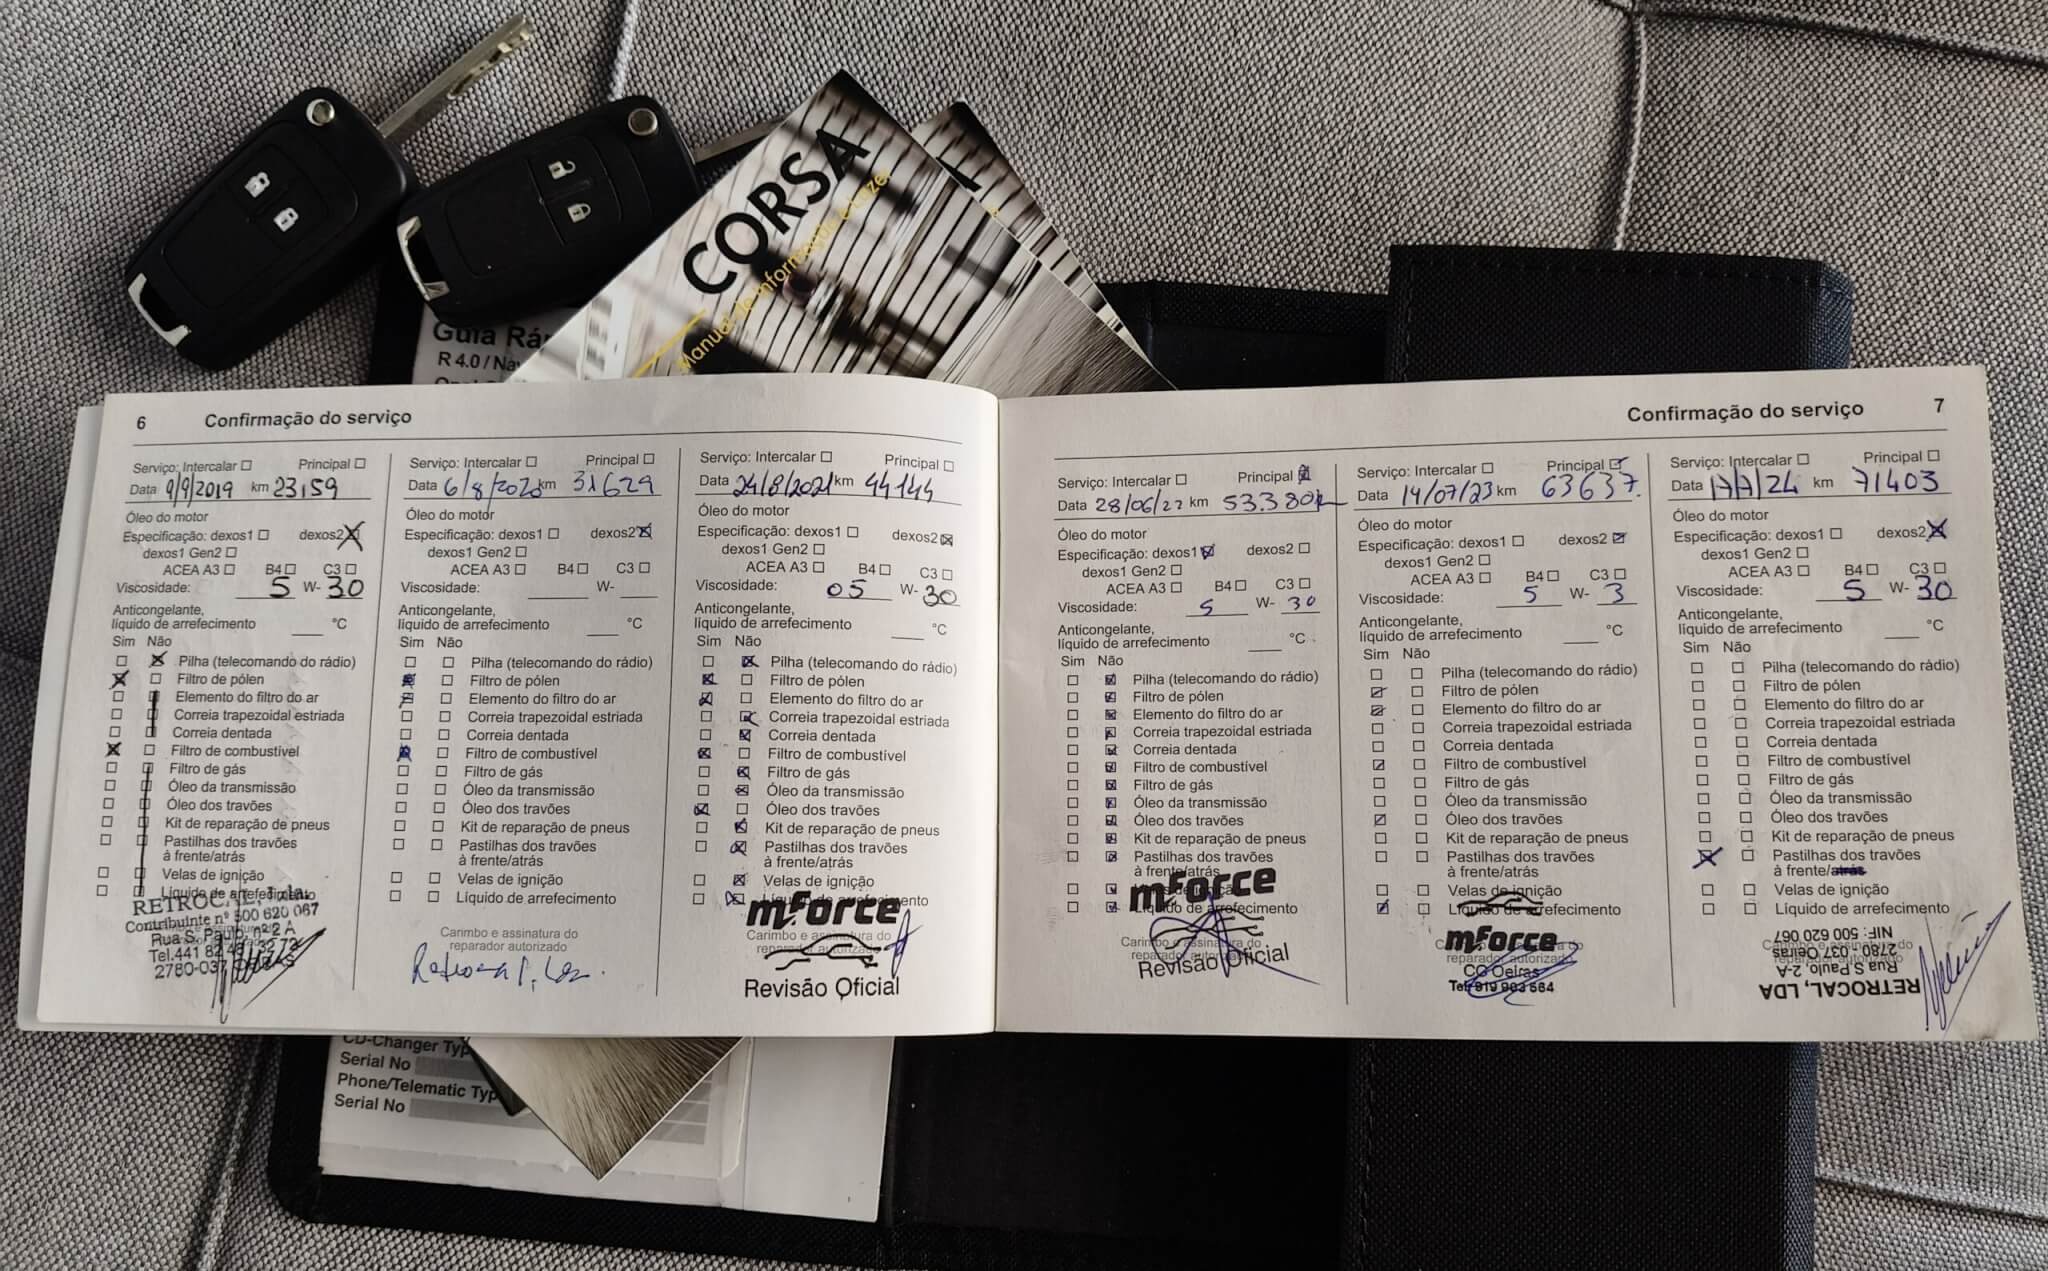 CORSA
Manual de Informação e Lazer
Guia Rá
R 4.0 / Nav
6
Confirmação do serviço
Serviço: Intercalar ☐ Principal ☐
Data 9/9/2019 km 23,59
Óleo do motor
Especificação: dexos1 ☐ dexos2 ☒
dexos1 Gen2 ☐
ACEA A3 ☐ B4 ☐ C3 ☐
Viscosidade: 5 W- 30
Anticongelante,
líquido de arrefecimento ___ °C
Sim Não
☐ ☒ Pilha (telecomando do rádio)
☒ ☐ Filtro de pólen
☐ ☐ Elemento do filtro do ar
☐ ☐ Correia trapezoidal estriada
☐ ☐ Correia dentada
☒ ☐ Filtro de combustível
☐ ☐ Filtro de gás
☐ ☐ Óleo da transmissão
☐ ☐ Óleo dos travões
☐ ☐ Kit de reparação de pneus
☐ ☐ Pastilhas dos travões
à frente/atrás
☐ ☐ Velas de ignição
☐ ☐ Líquido de arrefecimento
RETROCAL, Lda.
Contribuinte nº 500 620 067
Rua S. Paulo, nº 2 A
2780-037
Serviço: Intercalar ☐ Principal ☐
Data 6/8/2020 km 31629
Óleo do motor
Especificação: dexos1 ☐ dexos2 ☒
dexos1 Gen2 ☐
ACEA A3 ☐ B4 ☐ C3 ☐
Viscosidade: ___ W- ___
Anticongelante,
líquido de arrefecimento ___ °C
Sim Não
☐ ☐ Pilha (telecomando do rádio)
☒ ☐ Filtro de pólen
☒ ☐ Elemento do filtro do ar
☐ ☐ Correia trapezoidal estriada
☐ ☐ Correia dentada
☒ ☐ Filtro de combustível
☐ ☐ Filtro de gás
☐ ☐ Óleo da transmissão
☐ ☐ Óleo dos travões
☐ ☐ Kit de reparação de pneus
☐ ☐ Pastilhas dos travões
à frente/atrás
☐ ☐ Velas de ignição
☐ ☐ Líquido de arrefecimento
Carimbo e assinatura do
reparador autorizado
Serviço: Intercalar ☐ Principal ☐
Data 24/8/2021 km 44144
Óleo do motor
Especificação: dexos1 ☐ dexos2 ☒
dexos1 Gen2 ☐
ACEA A3 ☐ B4 ☐ C3 ☐
Viscosidade: 05 W- 30
Anticongelante,
líquido de arrefecimento ___ °C
Sim Não
☐ ☒ Pilha (telecomando do rádio)
☒ ☐ Filtro de pólen
☒ ☐ Elemento do filtro do ar
☐ ☒ Correia trapezoidal estriada
☐ ☒ Correia dentada
☒ ☐ Filtro de combustível
☐ ☒ Filtro de gás
☐ ☒ Óleo da transmissão
☒ ☐ Óleo dos travões
☐ ☒ Kit de reparação de pneus
☐ ☒ Pastilhas dos travões
à frente/atrás
☐ ☒ Velas de ignição
☐ ☒ Líquido de arrefecimento
mForce
Carimbo e assinatura do
reparador autorizado
Revisão Oficial
Confirmação do serviço
7
Serviço: Intercalar ☐ Principal ☒
Data 28/06/22 km 53.380
Óleo do motor
Especificação: dexos1 ☒ dexos2 ☐
dexos1 Gen2 ☐
ACEA A3 ☐ B4 ☐ C3 ☐
Viscosidade: 5 W- 30
Anticongelante,
líquido de arrefecimento ___ °C
Sim Não
☐ ☒ Pilha (telecomando do rádio)
☐ ☒ Filtro de pólen
☐ ☒ Elemento do filtro do ar
☐ ☒ Correia trapezoidal estriada
☐ ☒ Correia dentada
☐ ☒ Filtro de combustível
☐ ☒ Filtro de gás
☐ ☒ Óleo da transmissão
☐ ☒ Óleo dos travões
☐ ☒ Kit de reparação de pneus
☐ ☒ Pastilhas dos travões
à frente/atrás
☐ ☒ Velas de ignição
☐ ☒ Líquido de arrefecimento
mForce
Carimbo e assinatura do
reparador autorizado
Revisão Oficial
Serviço: Intercalar ☐ Principal ☒
Data 14/07/23 km 63637.
Óleo do motor
Especificação: dexos1 ☐ dexos2 ☒
dexos1 Gen2 ☐
ACEA A3 ☐ B4 ☐ C3 ☐
Viscosidade: 5 W- 3
Anticongelante,
líquido de arrefecimento ___ °C
Sim Não
☐ ☐ Pilha (telecomando do rádio)
☒ ☐ Filtro de pólen
☒ ☐ Elemento do filtro do ar
☐ ☐ Correia trapezoidal estriada
☐ ☐ Correia dentada
☒ ☐ Filtro de combustível
☐ ☐ Filtro de gás
☐ ☐ Óleo da transmissão
☒ ☐ Óleo dos travões
☐ ☐ Kit de reparação de pneus
☐ ☐ Pastilhas dos travões
à frente/atrás
☐ ☐ Velas de ignição
☒ ☐ Líquido de arrefecimento
mForce
reparador autorizado
CG Oeiras
Tel: 919 993 564
Serviço: Intercalar ☐ Principal ☐
Data 17/7/24 km 71403
Óleo do motor
Especificação: dexos1 ☐ dexos2 ☒
dexos1 Gen2 ☐
ACEA A3 ☐ B4 ☐ C3 ☐
Viscosidade: 5 W- 30
Anticongelante,
líquido de arrefecimento ___ °C
Sim Não
☐ ☐ Pilha (telecomando do rádio)
☐ ☐ Filtro de pólen
☐ ☐ Elemento do filtro do ar
☐ ☐ Correia trapezoidal estriada
☐ ☐ Correia dentada
☐ ☐ Filtro de combustível
☐ ☐ Filtro de gás
☐ ☐ Óleo da transmissão
☐ ☐ Óleo dos travões
☐ ☐ Kit de reparação de pneus
☒ ☐ Pastilhas dos travões
à frente/atrás
☐ ☐ Velas de ignição
☐ ☐ Líquido de arrefecimento
RETROCAL, LDA
Rua S.Paulo, 2-A
2780-037 Oeiras
NIF: 500 620 067
CD-Changer Typ
Serial No
Phone/Telematic Typ
Serial No